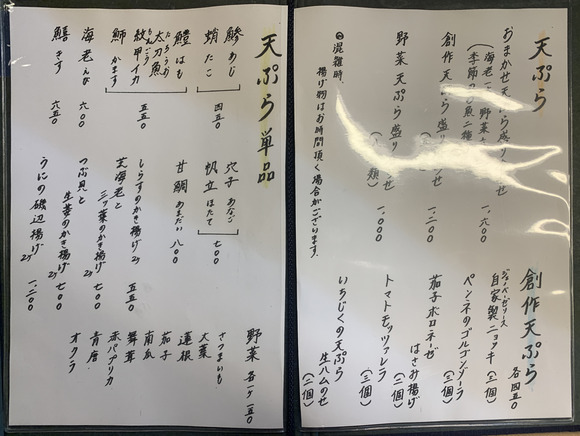 天ぷら
おまかせ天ぷら盛り合せ
(海老一、野菜
季節の 魚二種
一、六〇〇
創作天ぷら盛り合せ
一、二〇〇
野菜天ぷら盛り
類)
一、〇〇〇
混雑時、
揚げ物はお時間頂く場合がございます。
創作天ぷら
各四五〇
自家製ニョッキ(三個)
ペンネのゴルゴンゾーラ
(三個)
茄子ボロネーゼ
はさみ揚げ
(二個)
トマトモッツァレラ
(三個)
いちじくの天ぷら
生ハムのせ
(二個)
天ぷら単品
鯵 あじ
蛸 たこ
四五〇
鱧 はも
太刀魚
たちうお
紋甲イカ
もんごう
鰤 かます
五五〇
海老 えび
六〇〇
鱚 きす
六五〇
穴子 あなご
帆立 ほたて
七〇〇
甘鯛 あまだい
八〇〇
しらすのかき揚げ 2ヶ
五五〇
芝海老と
三ッ葉のかき揚げ 2ヶ
七〇〇
つぶ貝と
生姜のかき揚げ 2ヶ
七〇〇
うにの磯辺揚げ 2ヶ
一、二〇〇
野菜 各一ヶ 一五〇
さつまいも
大葉
蓮根
茄子
南瓜
舞茸
赤パプリカ
青唐
オクラ